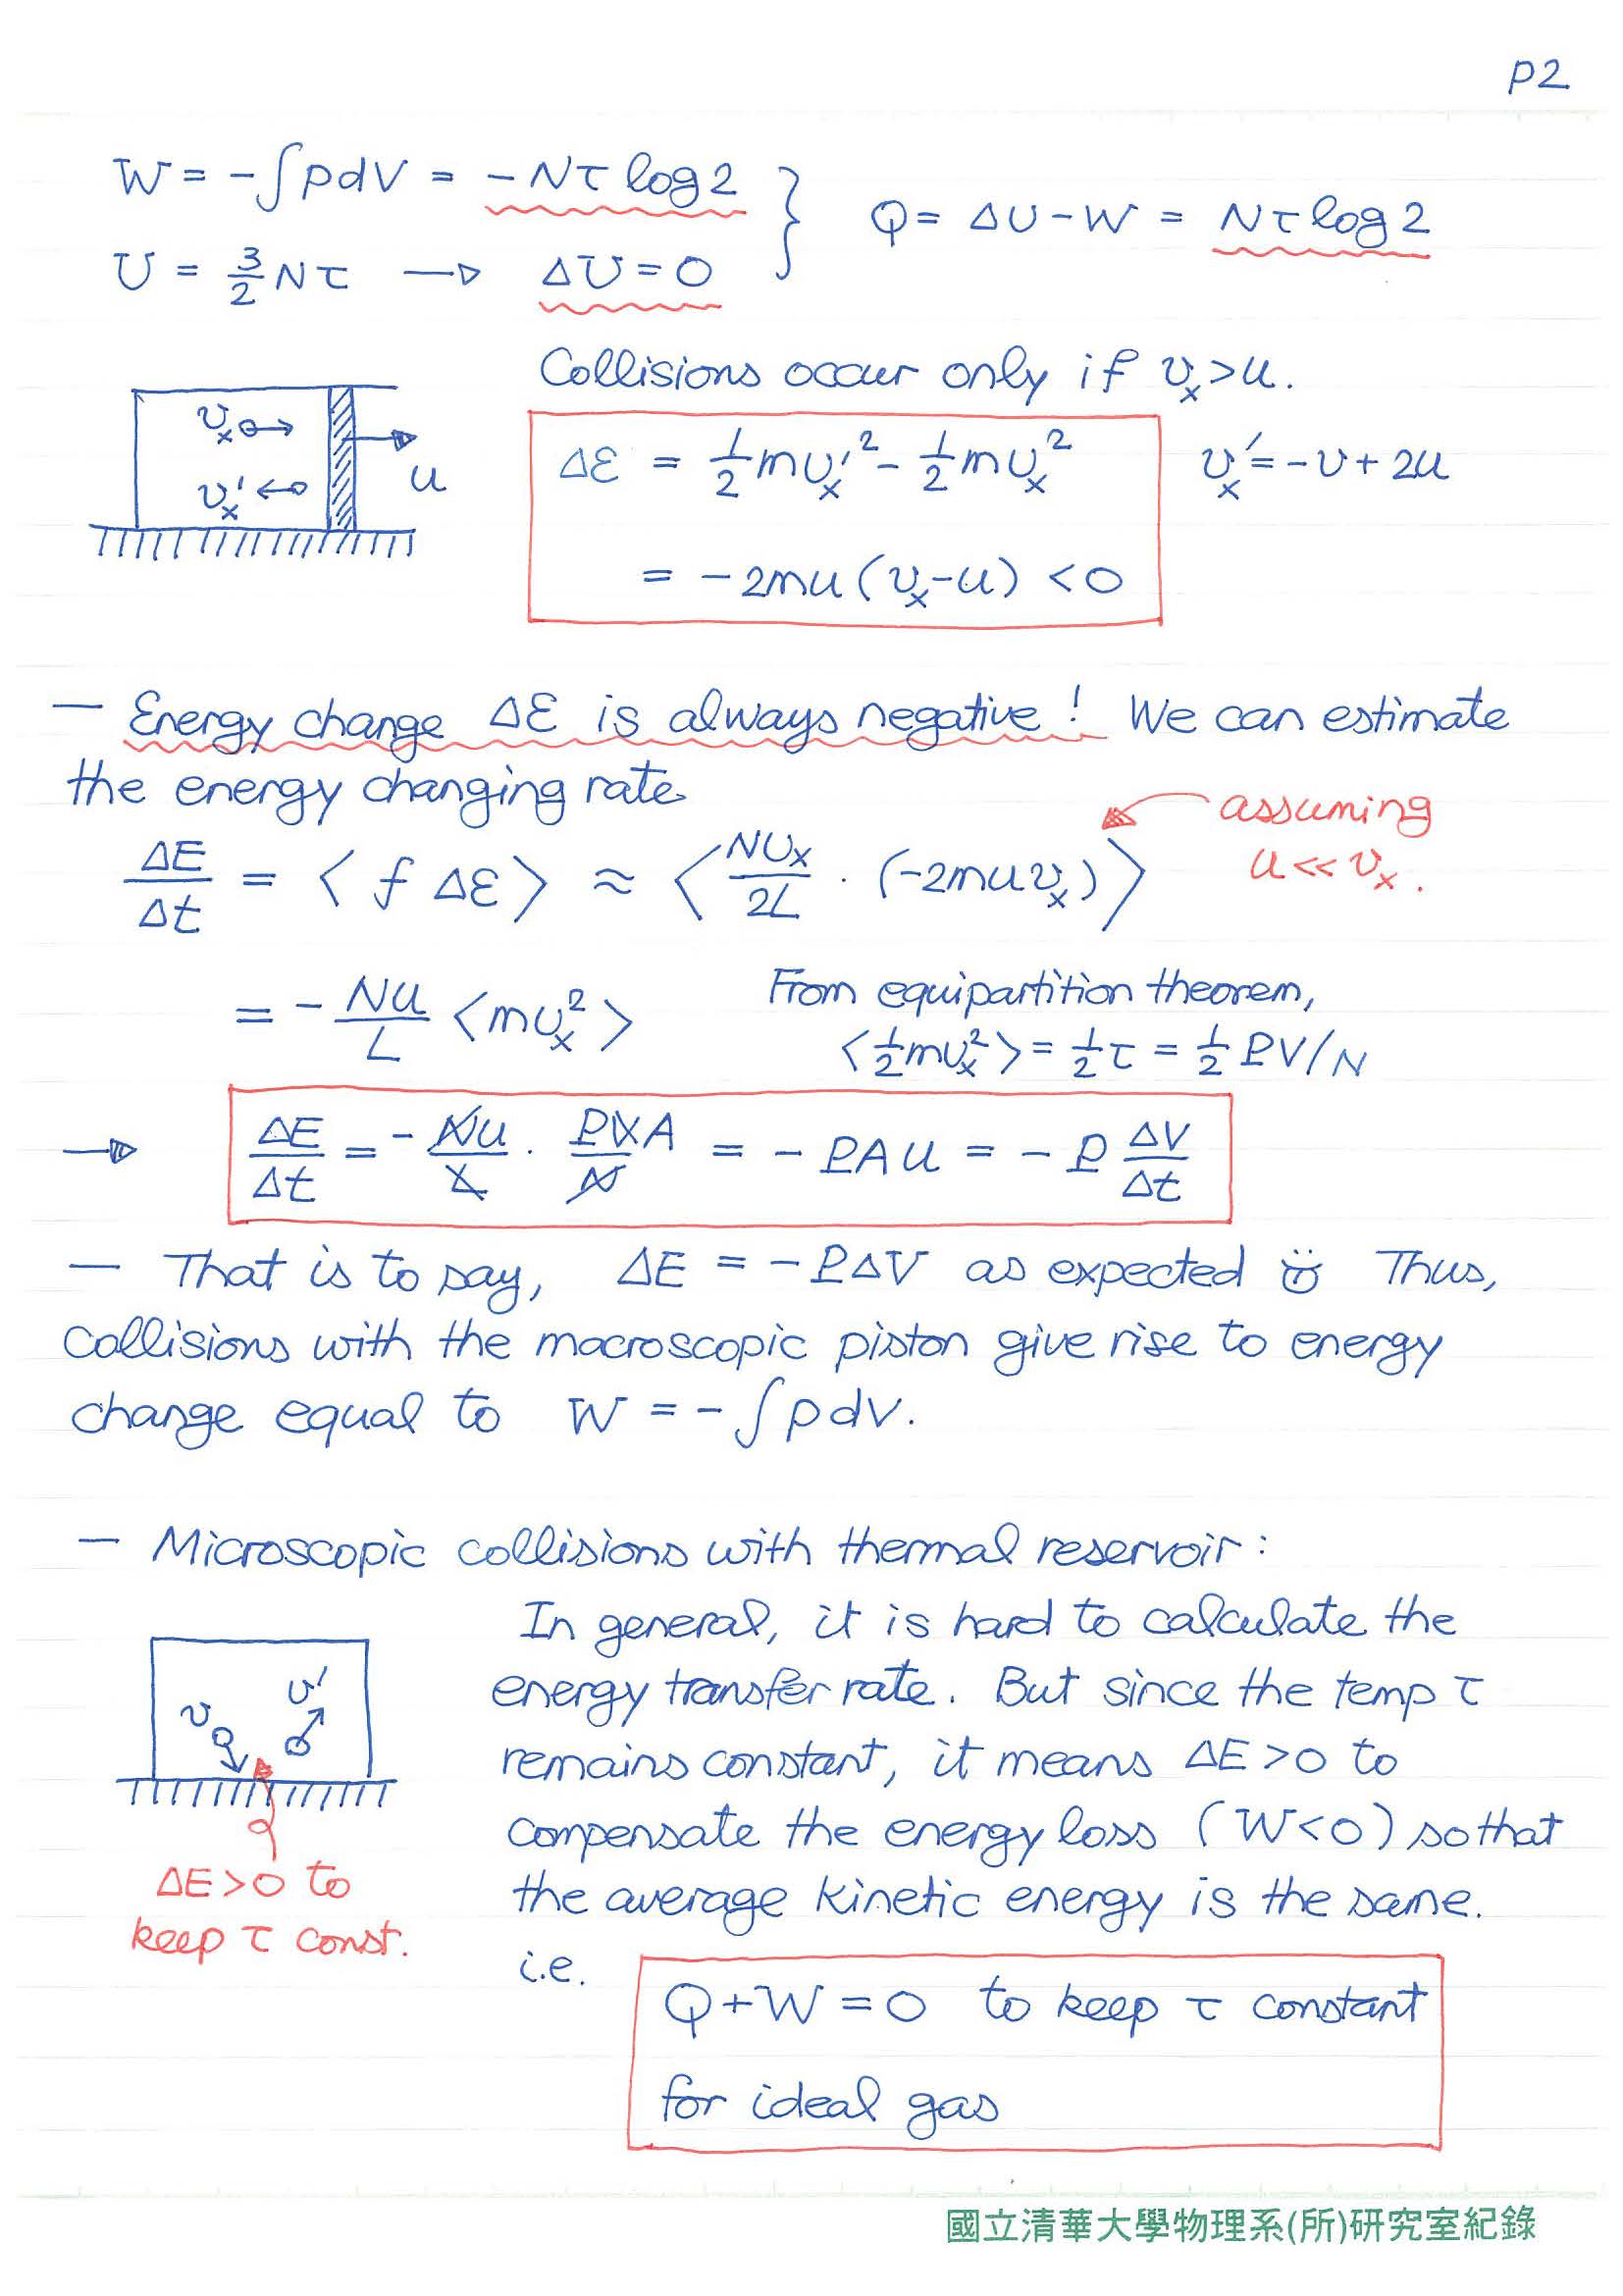 P2
W = -∫pdV = -Nτ log 2 } Q = ΔU - W = Nτ log 2
U = 3/2 Nτ → ΔU = 0
Collisions occur only if v_x > u.
v_x
v_x'
u
Δε = 1/2 m v_x'^2 - 1/2 m v_x^2 v_x' = -v + 2u
= -2mu (v_x - u) < 0
— Energy change Δε is always negative! We can estimate
the energy changing rate
assuming
u << v_x.
ΔE/Δt = < f Δε > ≈ < N v_x/2L · (-2mu v_x) >
= - Nu/L < m v_x^2 >
From equipartition theorem,
< 1/2 m v_x^2 > = 1/2 τ = 1/2 PV/N
→ ΔE/Δt = - Nu/L · PVA/N = - PAu = - P ΔV/Δt
— That is to say, ΔE = -PΔV as expected ☺ Thus,
collisions with the macroscopic piston give rise to energy
change equal to W = -∫pdV.
— Microscopic collisions with thermal reservoir:
In general, it is hard to calculate the
energy transfer rate. But since the temp τ
remains constant, it means ΔE > 0 to
compensate the energy loss (W < 0) so that
the average kinetic energy is the same.
v
v'
ΔE > 0 to
keep τ const.
i.e.
Q + W = 0 to keep τ constant
for ideal gas
國立清華大學物理系(所)研究室紀錄